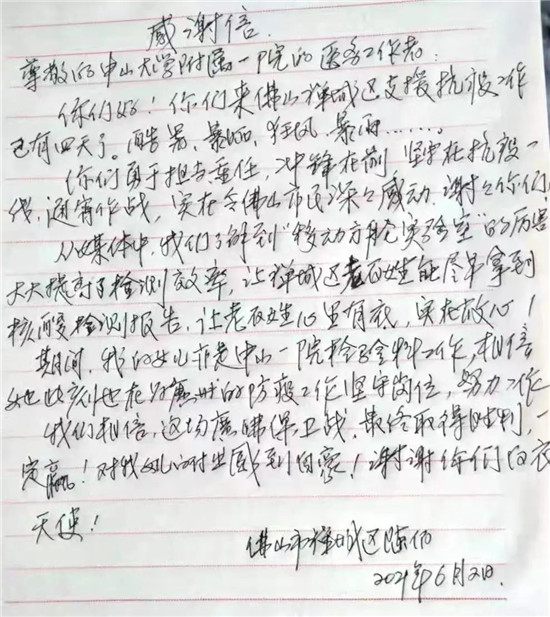 感谢信.
尊敬的中山大学附属一院的医务工作者:
你们好!你们来佛山禅城区支援抗疫工作
已有四天了。酷暑、暴晒、狂风、暴雨……。
你们勇于担当重任,冲锋在前 坚守在抗疫一
线,通宵作战,实在令佛山市民深々感动,谢々你们!
从媒体中,我们了解到“移动方舱实验室”的厉害
大大提高了检测效率,让禅城区老百姓能尽早拿到
核酸检测报告,让老百姓心里有底,实在放心!
期间,我的女儿亦是中山一院检验科工作,相信
她此刻也在为广州的防疫工作坚守岗位,努力工作
我们相信,这场广佛保卫战,最终取得胜利,一
定赢!对我女儿的付出感到自豪!谢谢你们白衣
天使!
佛山市禅城区陈伯
2021年6月2日.